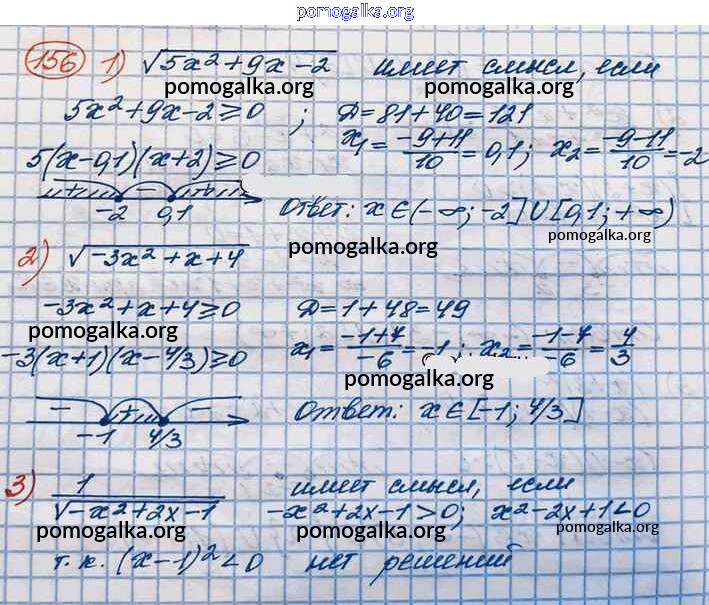 pomogalka.org
156 1) √5x²+9x-2 имеет смысл, если
pomogalka.org pomogalka.org
5x²+9x-2≥0 ; Д=81+40=121
5(x-0,1)(x+2)≥0 x₁= -9+11/10 =0,1; x₂= -9-11/10 =-2
+ - +
-2 0,1 Ответ: x∈(-∞; -2]∪[0,1; +∞)
pomogalka.org pomogalka.org
2) √-3x²+x+4
-3x²+x+4≥0 Д=1+48=49
pomogalka.org
-3(x+1)(x-4/3)≥0 x₁= -1+7/-6 =-1; x₂= -1-7/-6 = 4/3
pomogalka.org
- + -
-1 4/3 Ответ: x∈[-1; 4/3]
3) 1/√-x²+2x-1 имеет смысл, если
-x²+2x-1>0; x²-2x+1<0
pomogalka.org pomogalka.org pomogalka.org
т.к. (x-1)²<0 нет решений